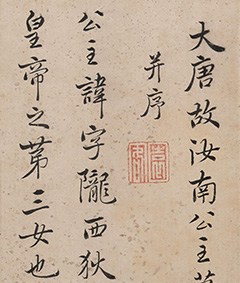 大唐故汝南公主
并序
公主諱字隴西狄
皇帝之苐三女也